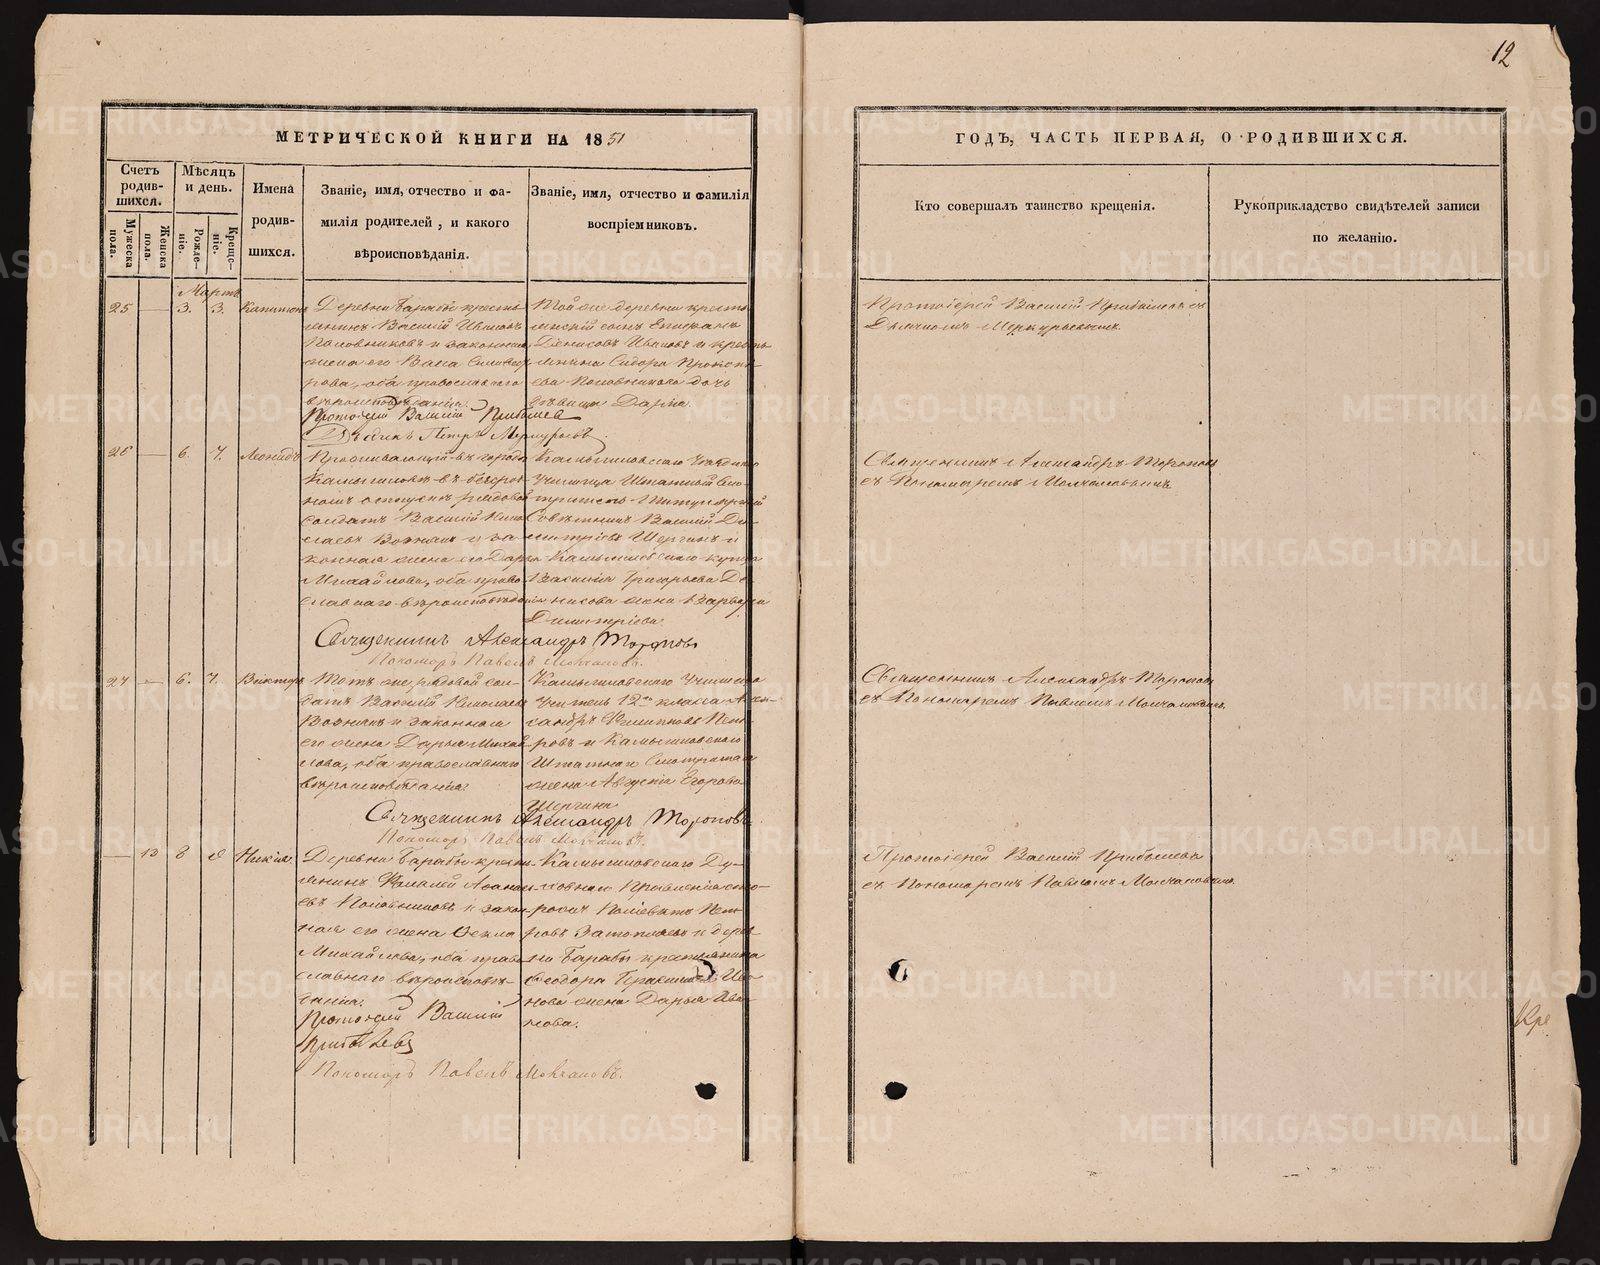 12
МЕТРИЧЕСКОЙ КНИГИ НА 1851
ГОДЪ, ЧАСТЬ ПЕРВАЯ, О РОДИВШИХСЯ.
Счетъ родив-шихся.
Мужеска пола.
Женска пола.
Мѣсяцъ и день.
Рожде-ніе.
Креще-ніе.
Имена
родив-
шихся.
Званіе, имя, отчество и фа-
милія родителей, и какого
вѣроисповѣданія.
Званіе, имя, отчество и фамилія
воспріемниковъ.
Кто совершалъ таинство крещенія.
Рукоприкладство свидѣтелей записи
по желанію.
Мартъ
25 — 3. 3. Капитонъ
Деревни Барабы кресть-
янинъ Василій Ивановъ
Половниковъ и законная
жена его Васса
рова, оба православнаго
вѣроисповѣданія.
Протоіерей Василій Прибылевъ
Дьячекъ Петръ Меркурьевъ
Той же деревни кресть-
янскій сынъ
Денисовъ Ивановъ и кресть-
янина Сидора
ева Половникова дочь
дѣвица Дарья.
Протоіерей Василій Прибылевъ съ
Дьячкомъ Меркурьевымъ.
26 — 6. 7. Леонидъ
Проживающій въ городѣ
Камышловѣ въ безсроч-
номъ отпускѣ рядовой
солдатъ Василій Нико-
лаевъ Вояковъ и за-
конная жена его Дарья
Михайлова, оба право-
славнаго вѣроисповѣданія
Священникъ Александръ Тороповъ
Пономарь Павелъ Молчановъ.
Камышловскаго Уѣзднаго
Училища Штатный Смо-
тритель Титулярный
Совѣтникъ Василій Ди-
митріевъ Шергинъ и
Камышловскаго купца
Василія Григорьева Де-
нисова жена Варвара
Димитріева.
Священникъ Александръ Тороповъ
съ Пономаремъ Молчановымъ.
27 — 6. 7. Викторъ
Тотъ же рядовой сол-
датъ Василій Николаевъ
Вояковъ и законная
его жена Дарья Михай-
лова, оба православнаго
вѣроисповѣданія.
Священникъ Александръ Тороповъ
Пономарь Павелъ Молчановъ.
Камышловскаго Училища
Учитель 12го класса Алек-
сандръ Филипповъ Пет-
ровъ и Камышловскаго
Штатнаго Смотрителя
жена Августа Егорова
Шергина
Священникъ Александръ Тороповъ
съ Пономаремъ Павломъ Молчановымъ.
— 13 8 8
Деревни Барабы кресть-
янинъ
евъ Половниковъ и закон-
ная его жена Ѳекла
Михайлова, оба право-
славнаго вѣроисповѣ-
данія.
Протоіерей Василій
Прибылевъ
Пономарь Павелъ Молчановъ.
Камышловскаго Ду-
ховнаго Правленія сто-
рожъ Поліевктъ Пет-
ровъ и дерев-
ни Барабы крестьянина
Ѳеодора Ива-
нова жена Дарья Ива-
нова.
Протоіерей Василій Прибылевъ
съ Пономаремъ Павломъ Молчановымъ.
Кре
METRIKI.GASO-URAL.RU